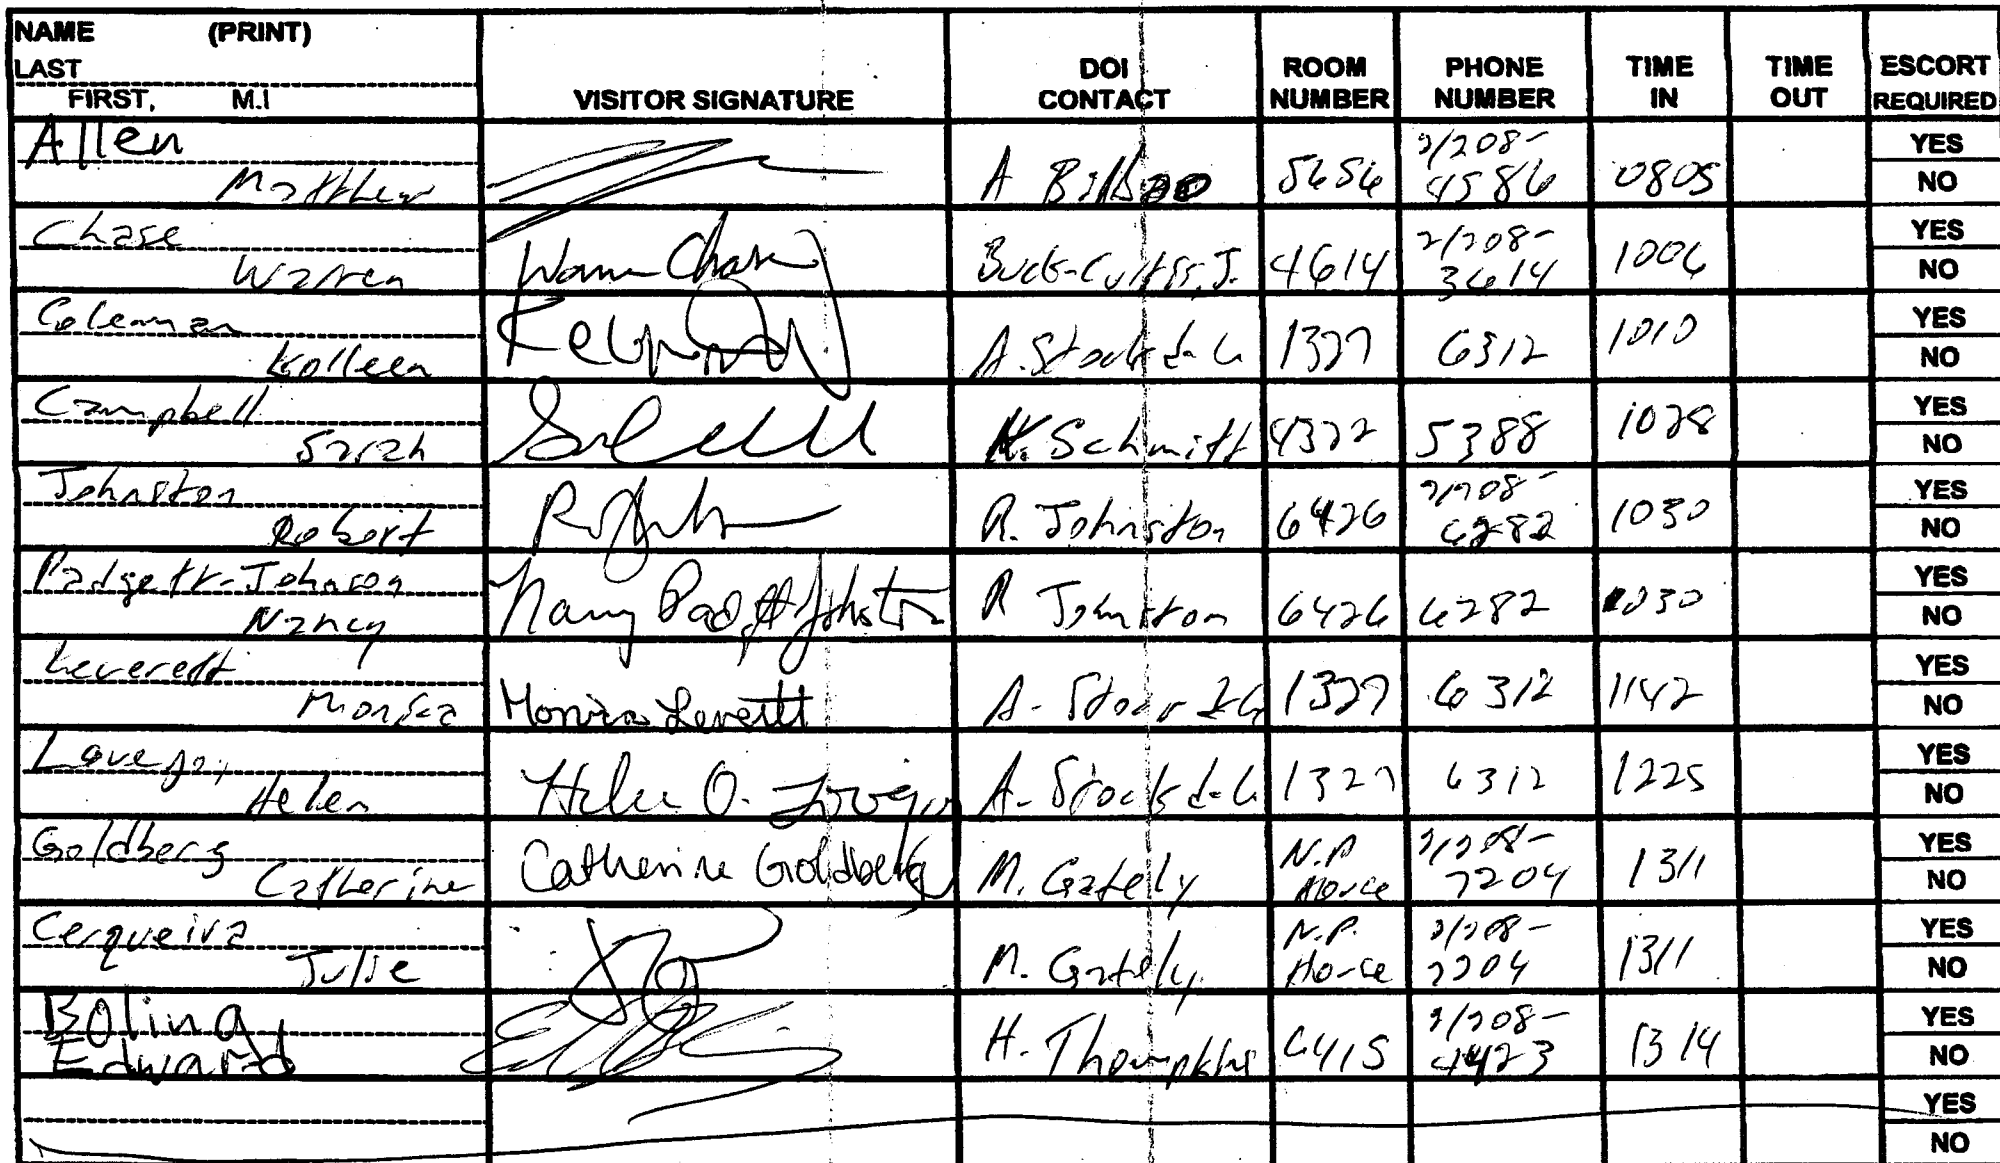 NAME (PRINT)
LAST
FIRST, M.I
VISITOR SIGNATURE
DOI CONTACT
ROOM NUMBER
PHONE NUMBER
TIME IN
TIME OUT
ESCORT REQUIRED
Allen
Matthew
A 5654 2/208-4586 0805 YES NO
Chase
Warren
Warren Chase 4614 2/208-3614 1006 YES NO
Coleman
Kolleen
A. Stockdale 1327 6312 1010 YES NO
Campbell
Sarah
K. Schmitt 4322 5388 1028 YES NO
Johnston
Robert
R. Johnston 6426 2/208-6282 1030 YES NO
Padgett-Johnson
Nancy
Nancy Padgett Johnston R Johnston 6426 6282 1030 YES NO
Leverett
Monica
Monica Leverett A. 1327 6312 1142 YES NO
Lovejoy
Helen
Helen O. Lovejoy A. Stockdale 1327 6312 1225 YES NO
Goldberg
Catherine
Catherine Goldberg M. Gately N.P. House 2/208-7204 1311 YES NO
Cerqueira
Julie
M. Gately N.P. House 2/208-7204 1311 YES NO
Boling,
Edward
H. Thompkins 6415 2/208-4423 1314 YES NO
YES
NO